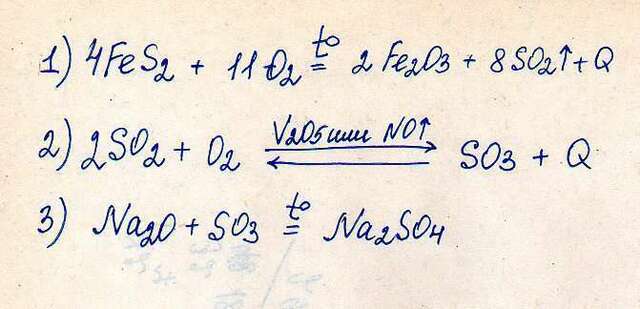 1) 4FeS2 + 11O2 t°= 2Fe2O3 + 8SO2↑ + Q
2) 2SO2 + O2 V2O5 или NO↑ ⇄ SO3 + Q
3) Na2O + SO3 t°= Na2SO4